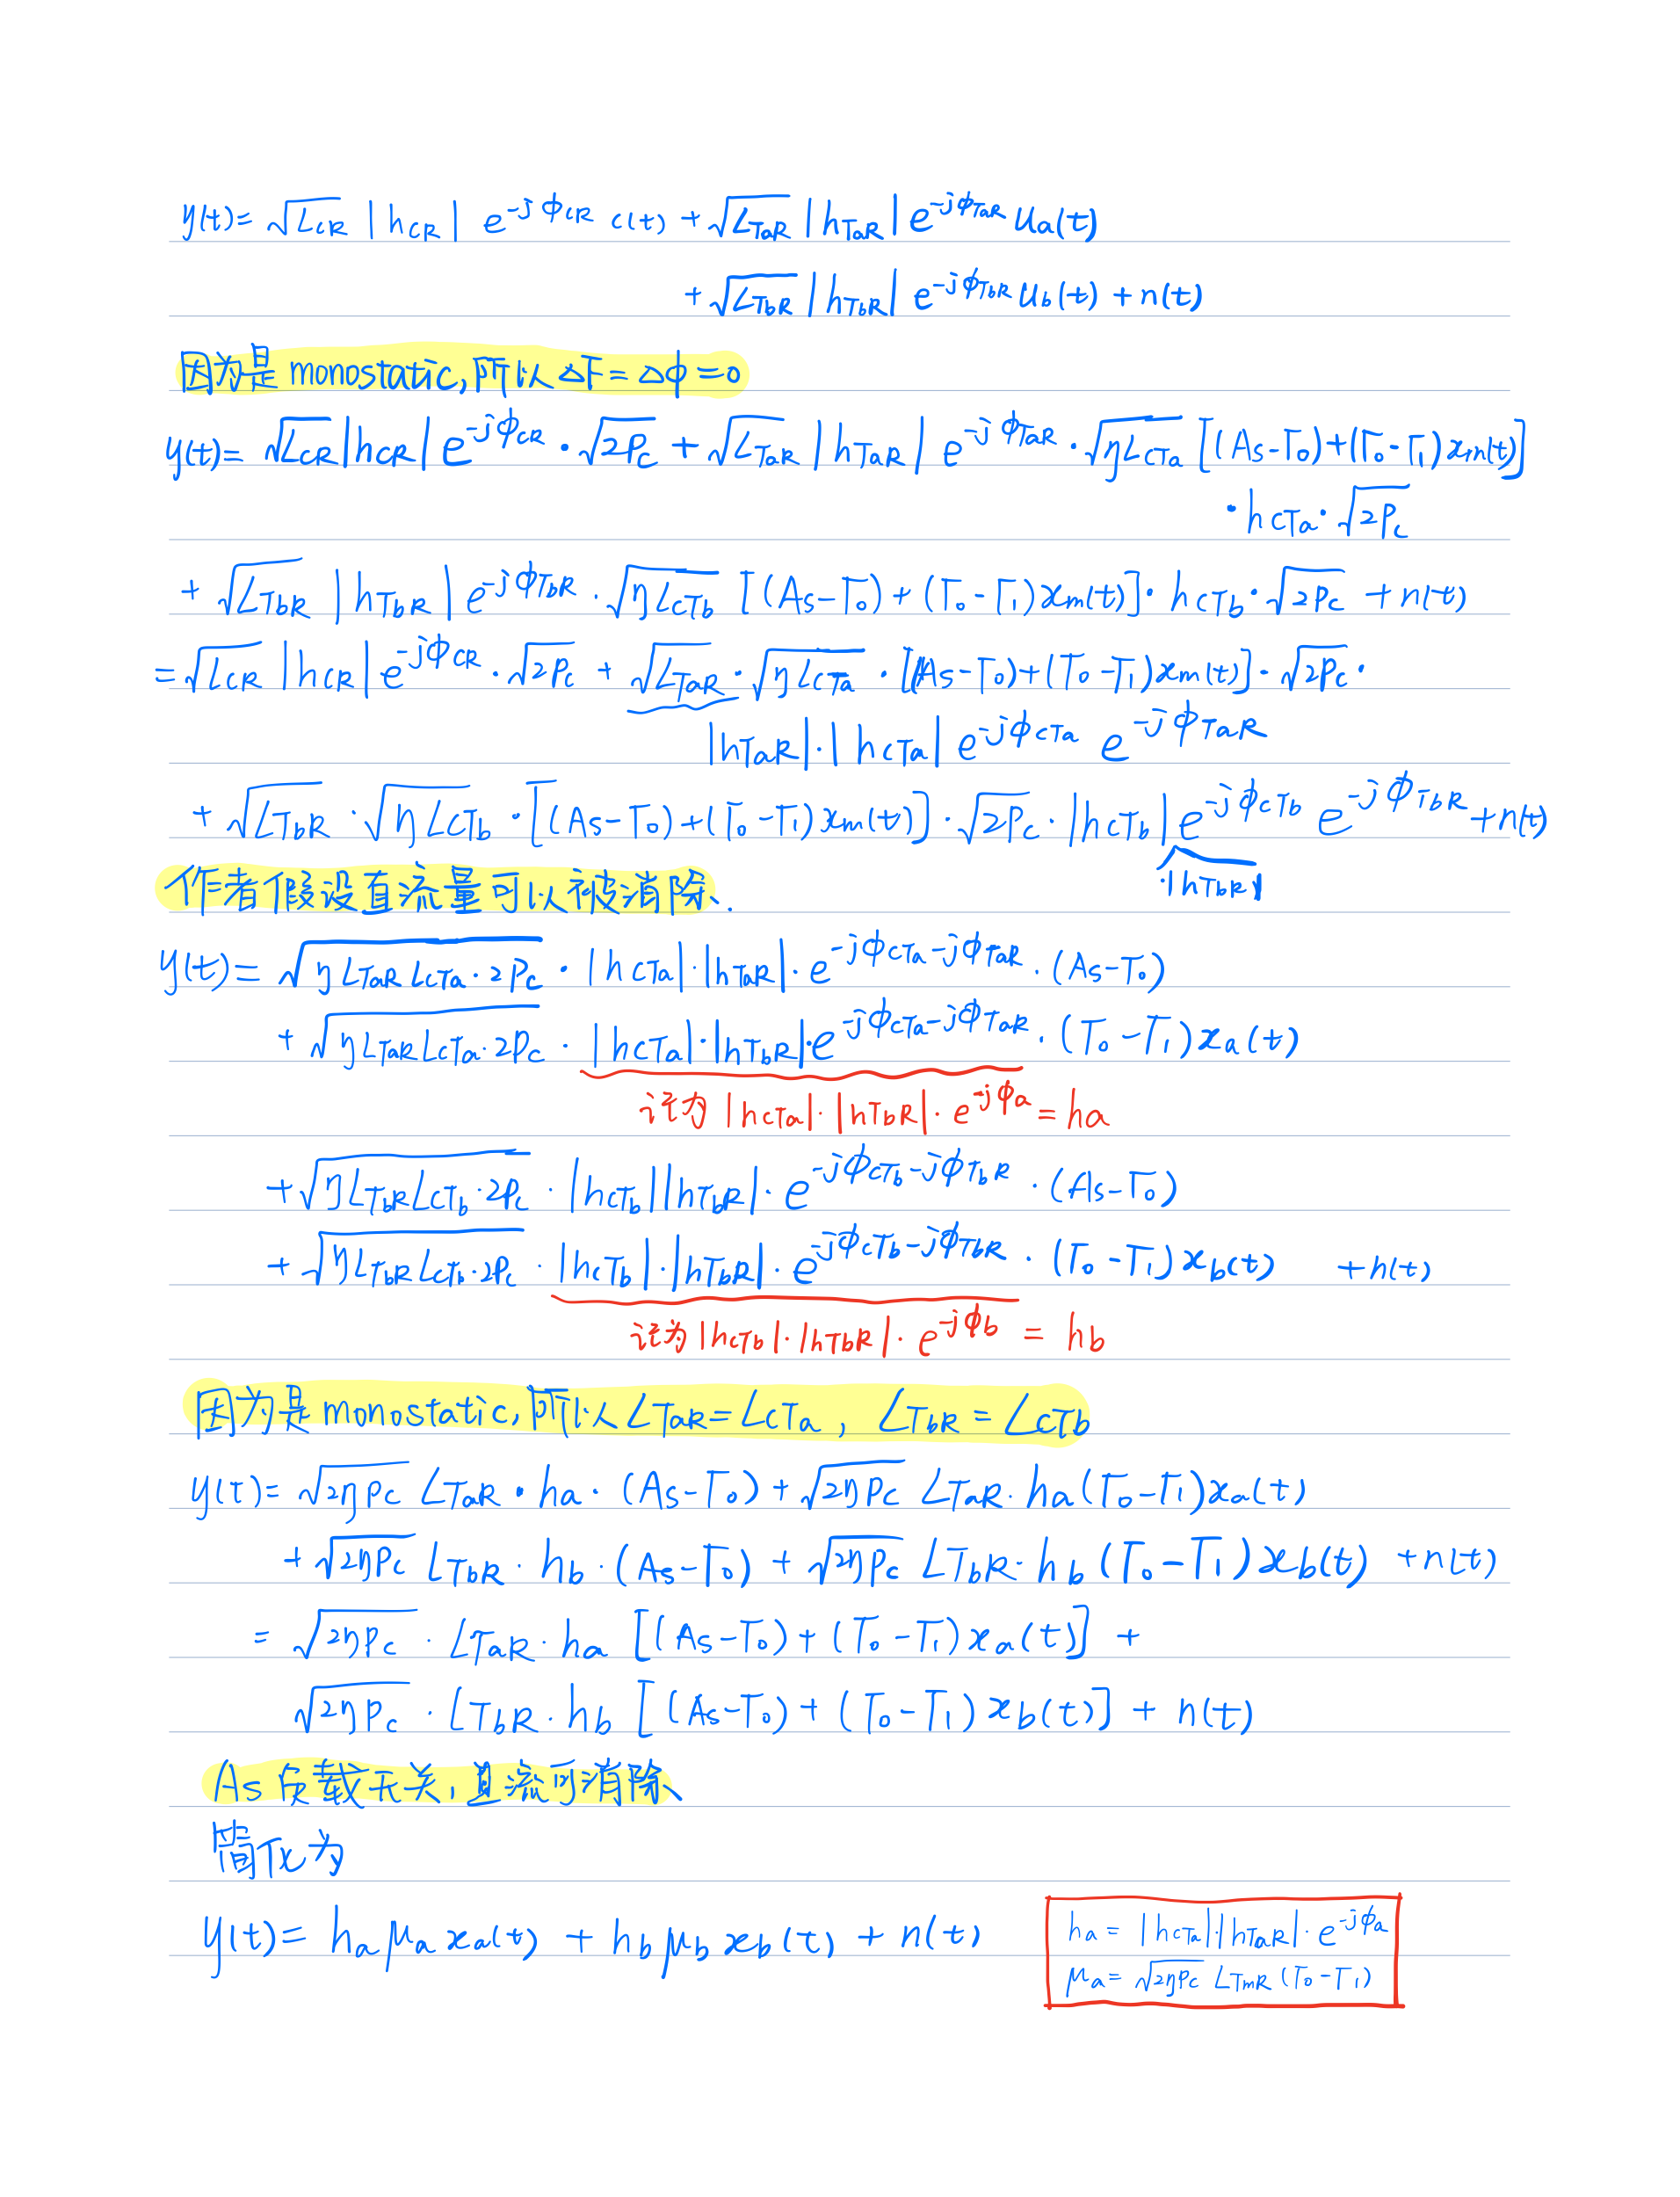 y(t)= √L_CR |h_CR| e^{-jϕ_CR} c(t) + √L_TaR |h_TaR| e^{-jϕ_TaR} u_a(t)
+ √L_TbR |h_TbR| e^{-jϕ_TbR} u_b(t) + n(t)
因为是 monostatic, 所以 △F = △ϕ = 0
y(t)= √L_CR |h_CR| e^{-jϕ_CR} · √2P_c + √L_TaR |h_TaR| e^{-jϕ_TaR} · √ηL_CTa [(A_s-Γ_0)+(Γ_0-Γ_1)x_m(t)]
· h_CTa · √2P_c
+ √L_TbR |h_TbR| e^{-jϕ_TbR} · √ηL_CTb [(A_s-Γ_0)+(Γ_0-Γ_1)x_m(t)] · h_CTb · √2P_c + n(t)
= √L_CR |h_CR| e^{-jϕ_CR} · √2P_c + √L_TaR · √ηL_CTa · [(A_s-Γ_0)+(Γ_0-Γ_1)x_m(t)] · √2P_c ·
|h_TaR| · |h_CTa| e^{-jϕ_CTa} e^{-jϕ_TaR}
+ √L_TbR · √ηL_CTb · [(A_s-Γ_0)+(Γ_0-Γ_1)x_m(t)] · √2P_c · |h_CTb| e^{-jϕ_CTb} e^{-jϕ_TbR} + n(t)
·|h_TbR|
作者假设直流量可以被消除.
y(t)= √ηL_TaR L_CTa · 2P_c · |h_CTa| · |h_TaR| · e^{-jϕ_CTa-jϕ_TaR} · (A_s-Γ_0)
+ √ηL_TaR L_CTa · 2P_c · |h_CTa| · |h_TbR| · e^{-jϕ_CTa-jϕ_TaR} · (Γ_0-Γ_1)x_a(t)
记为 |h_CTa| · |h_TbR| · e^{-jϕ_a} = h_a
+ √ηL_TbR L_CTb · 2P_c · |h_CTb| |h_TbR| · e^{-jϕ_CTb-jϕ_TbR} · (A_s-Γ_0)
+ √ηL_TbR L_CTb · 2P_c · |h_CTb| · |h_TbR| · e^{-jϕ_CTb-jϕ_TbR} · (Γ_0-Γ_1)x_b(t) + n(t)
记为 |h_CTb| · |h_TbR| · e^{-jϕ_b} = h_b
因为是 monostatic, 所以 L_TaR = L_CTa , L_TbR = L_CTb
y(t)= √2ηP_c L_TaR · h_a · (A_s-Γ_0) + √2ηP_c L_TaR · h_a (Γ_0-Γ_1)x_a(t)
+ √2ηP_c L_TbR · h_b · (A_s-Γ_0) + √2ηP_c L_TbR · h_b (Γ_0-Γ_1)x_b(t) + n(t)
= √2ηP_c · L_TaR · h_a [(A_s-Γ_0)+(Γ_0-Γ_1)x_a(t)] +
√2ηP_c · L_TbR · h_b [(A_s-Γ_0)+(Γ_0-Γ_1)x_b(t)] + n(t)
A_s 负载无关, 直流可消除、
简化为
y(t)= h_a μ_a x_a(t) + h_b μ_b x_b(t) + n(t)
h_a = |h_CTa|·|h_TaR| · e^{-jϕ_a}
μ_a = √2ηP_c L_TmR (Γ_0-Γ_1)